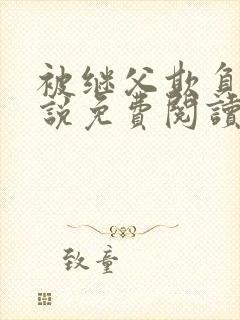 被继父欺负
說免費閱讀
致童